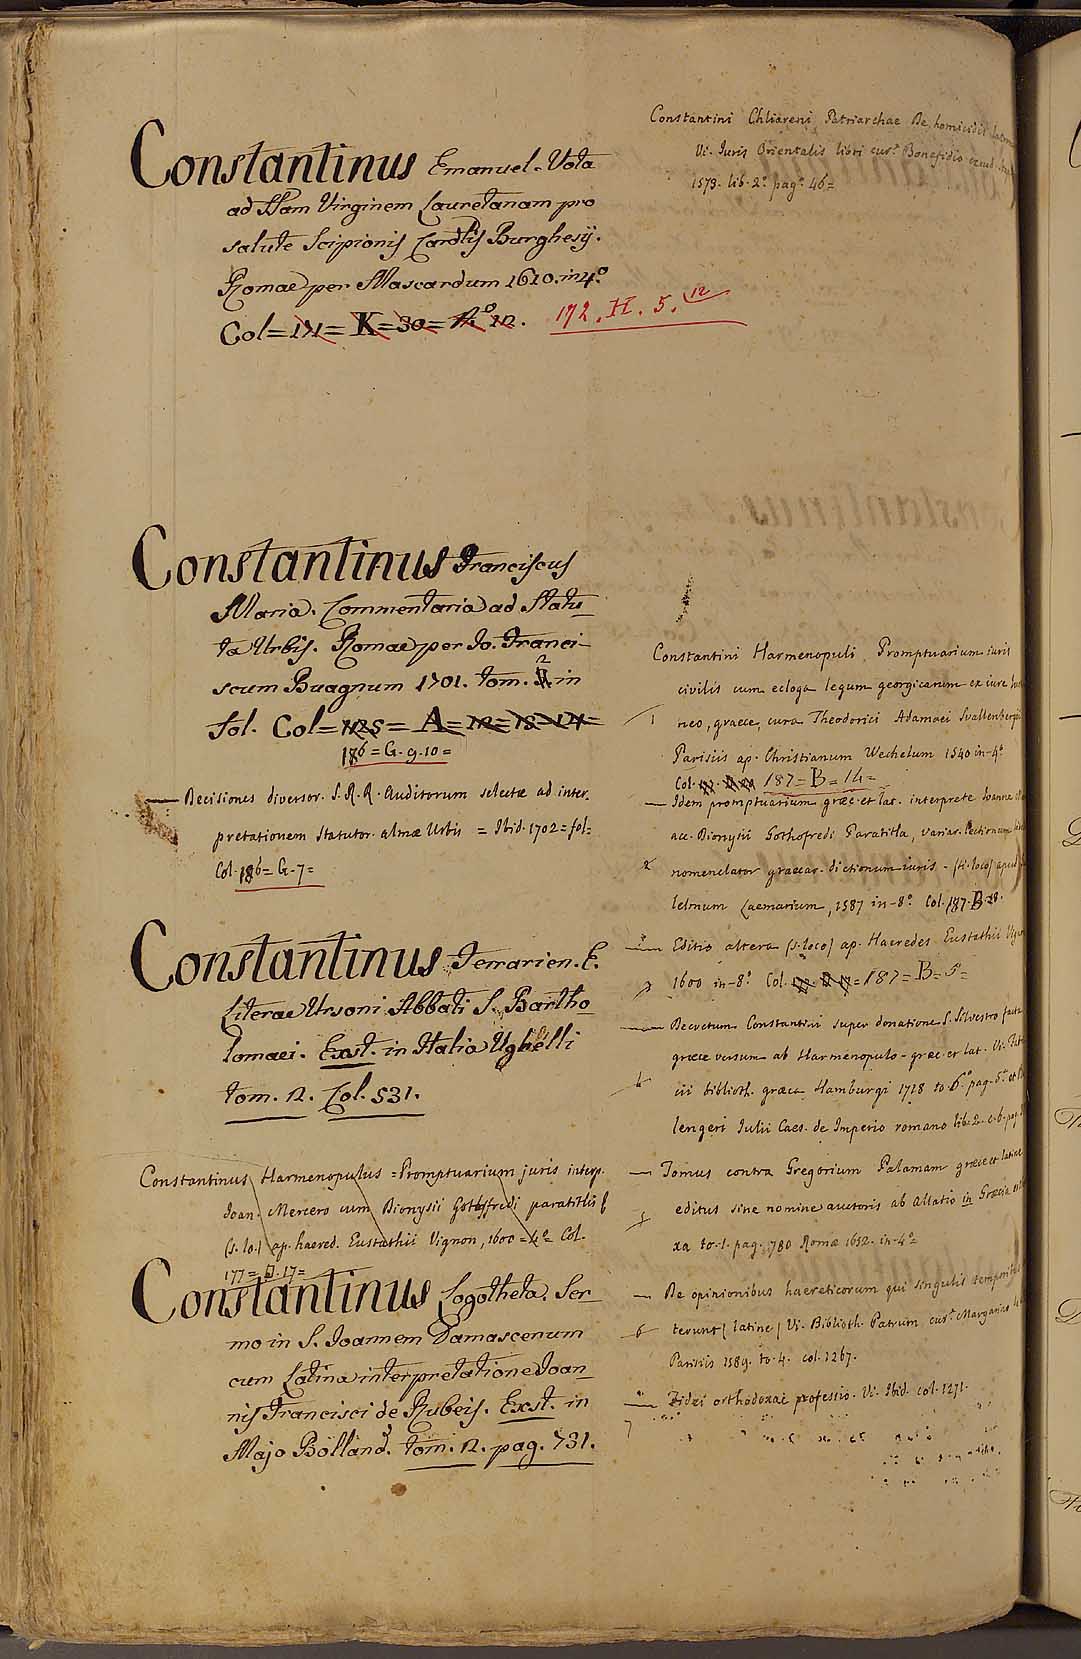 Constantinus Emanuel. Vota
ad Stam Virginem Lauretanam pro
salute Scipionis Cardlis Burghesij.
Romae per Mascardum 1610. in 4.º
Col= 171= K= 30= A.º 12. 172. H. 5. 12
Constantinus Franciscus
Maria. Commentaria ad Statu-
ta Urbis. Romae per Io. Franci-
scum Buagnum 1701. tom. 2 in
fol. Col= 1125= A= 12= 13= 14=
186= G. 9. 10=
— Decisiones diversor. S. R. R. Auditorum selectæ ad inter-
pretationem Statutor. almæ Urbis = Ibid. 1702= fol=
Col. 186= G. 7=
Constantinus Terrarien. E.
Literae Ursoni Abbati S. Bartho
lomaei. Exst. in Italia Ughelli
tom. 2. Col. 531.
Constantinus Harmenopulus = Promptuarium juris interp.
Ioan. Mercero cum Dionysii Gothffredi paratitlis
(s. lo.) ap. haered. Eustathii Vignon, 1600= 4º= Col.
177= D. 17=
Constantinus Logotheta. Ser-
mo in S. Ioannem Damascenum
cum Latina interpretatione Ioan-
nis Francisci de Rubeis. Exst. in
Majo Bolland. tom. 2. pag. 731.
Constantini Chliareni Patriarchae De homicidis
Vi. Iuris Orientalis libri cur.ª Bonefidio
1573. lib. 2º pagª 46=
Constantini Harmenopuli Promptuarium iuris
civilis cum ecloga legum georgicarum ex iure
1 neo, graece, cura Theodorici Adamaei Suallenbergii
Parisiis ap. Christianum Wechelum 1540 in-4º
Col. 187= B= 14=
— Idem promptuarium græc. et lat. interprete Ioanne
acc. Dionysii Gothofredi Paratitla, variar. Lectionum
2 nomenclator graecar. dictionum iuris - (s. loco) apud
lelmum Laemarium, 1587 in-8º Col. 187. B.
3 — Editio altera (s. loco) ap. Haeredes Eustathii
1600 in-8º Col. = 187= B= 5=
— Decretum Constantini super donatione S. Silvestro facta
græce versum ab Harmenopulo - græc. et lat. Vi.
4 cii biblioth. græca Hamburgi 1718 to. 6.º pag. 5. et
lengeri Iulii Caes. de Imperio romano lib. 2. c. 6. pag.
— Tomus contra Gregorium Palamam græce et latine
5 editus sine nomine auctoris ab Allatio in Græcia
xa to. 1. pag. 780 Romæ 1652. in-4º
— De opinionibus haereticorum qui singulis temporibus
6 terunt (latine) Vi. Biblioth. Patrum cur.ª Margarino
Parisiis 1589. to. 4. col. 1267.
— Fidei orthodoxae professio. Vi. Ibid. col. 1271.
7